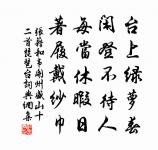 台上綠蘿春
閑登不待人
每當休暇日
著履戴紗巾
張籍和韋開州盛山十
二首琵琶台詞典網集